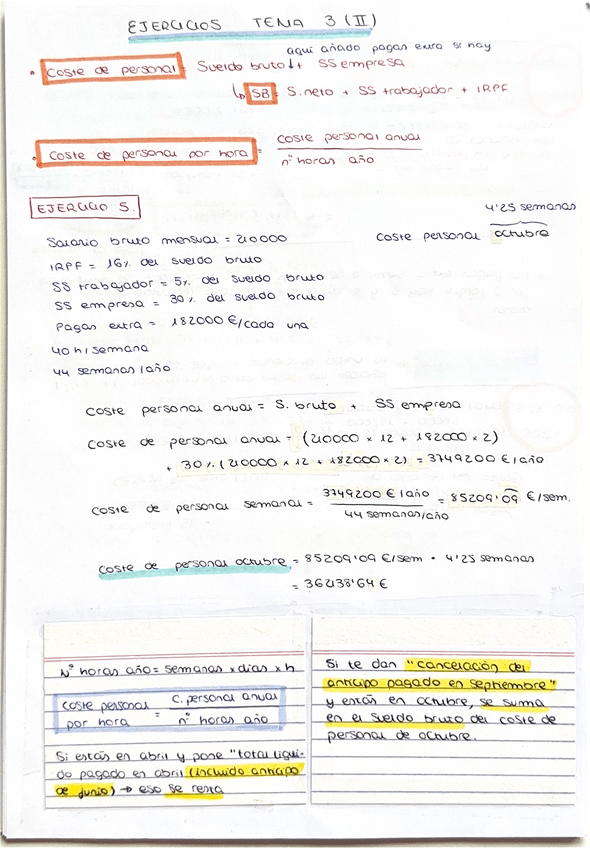 EJERCICIOS TEMA 3 (II)
aquí añado pagas extra si hay
• Coste de personal = Sueldo bruto ↓ + SS empresa
↳ SB = S. neto + SS trabajador + IRPF
• Coste de personal por hora = coste personal anual / nº horas año
EJERCICIO 5.
4'25 semanas
Salario bruto mensual = 210000
coste personal octubre
IRPF = 16% del sueldo bruto
SS trabajador = 5% del sueldo bruto
SS empresa = 30% del sueldo bruto
Pagas extra = 182000 €/cada una
40 h/semana
44 semanas/año
coste personal anual = S. bruto + SS empresa
coste de personal anual = (210000 × 12 + 182000 × 2)
+ 30% (210000 × 12 + 182000 × 2) = 3749200 €/año
coste de personal semanal = 3749200 €/año / 44 semanas/año = 85209'09 €/sem.
coste de personal octubre = 85209'09 €/sem · 4'25 semanas
= 362138'64 €
Nº horas año = semanas × días × h
coste personal por hora = C. personal anual / nº horas año
Si estás en abril y pone "total líqui-
do pagado en abril (incluido anticipo
de junio) → eso se resta
Si te dan "cancelación del
anticipo pagado en septiembre"
y estás en octubre, se suma
en el sueldo bruto del coste de
personal de octubre.